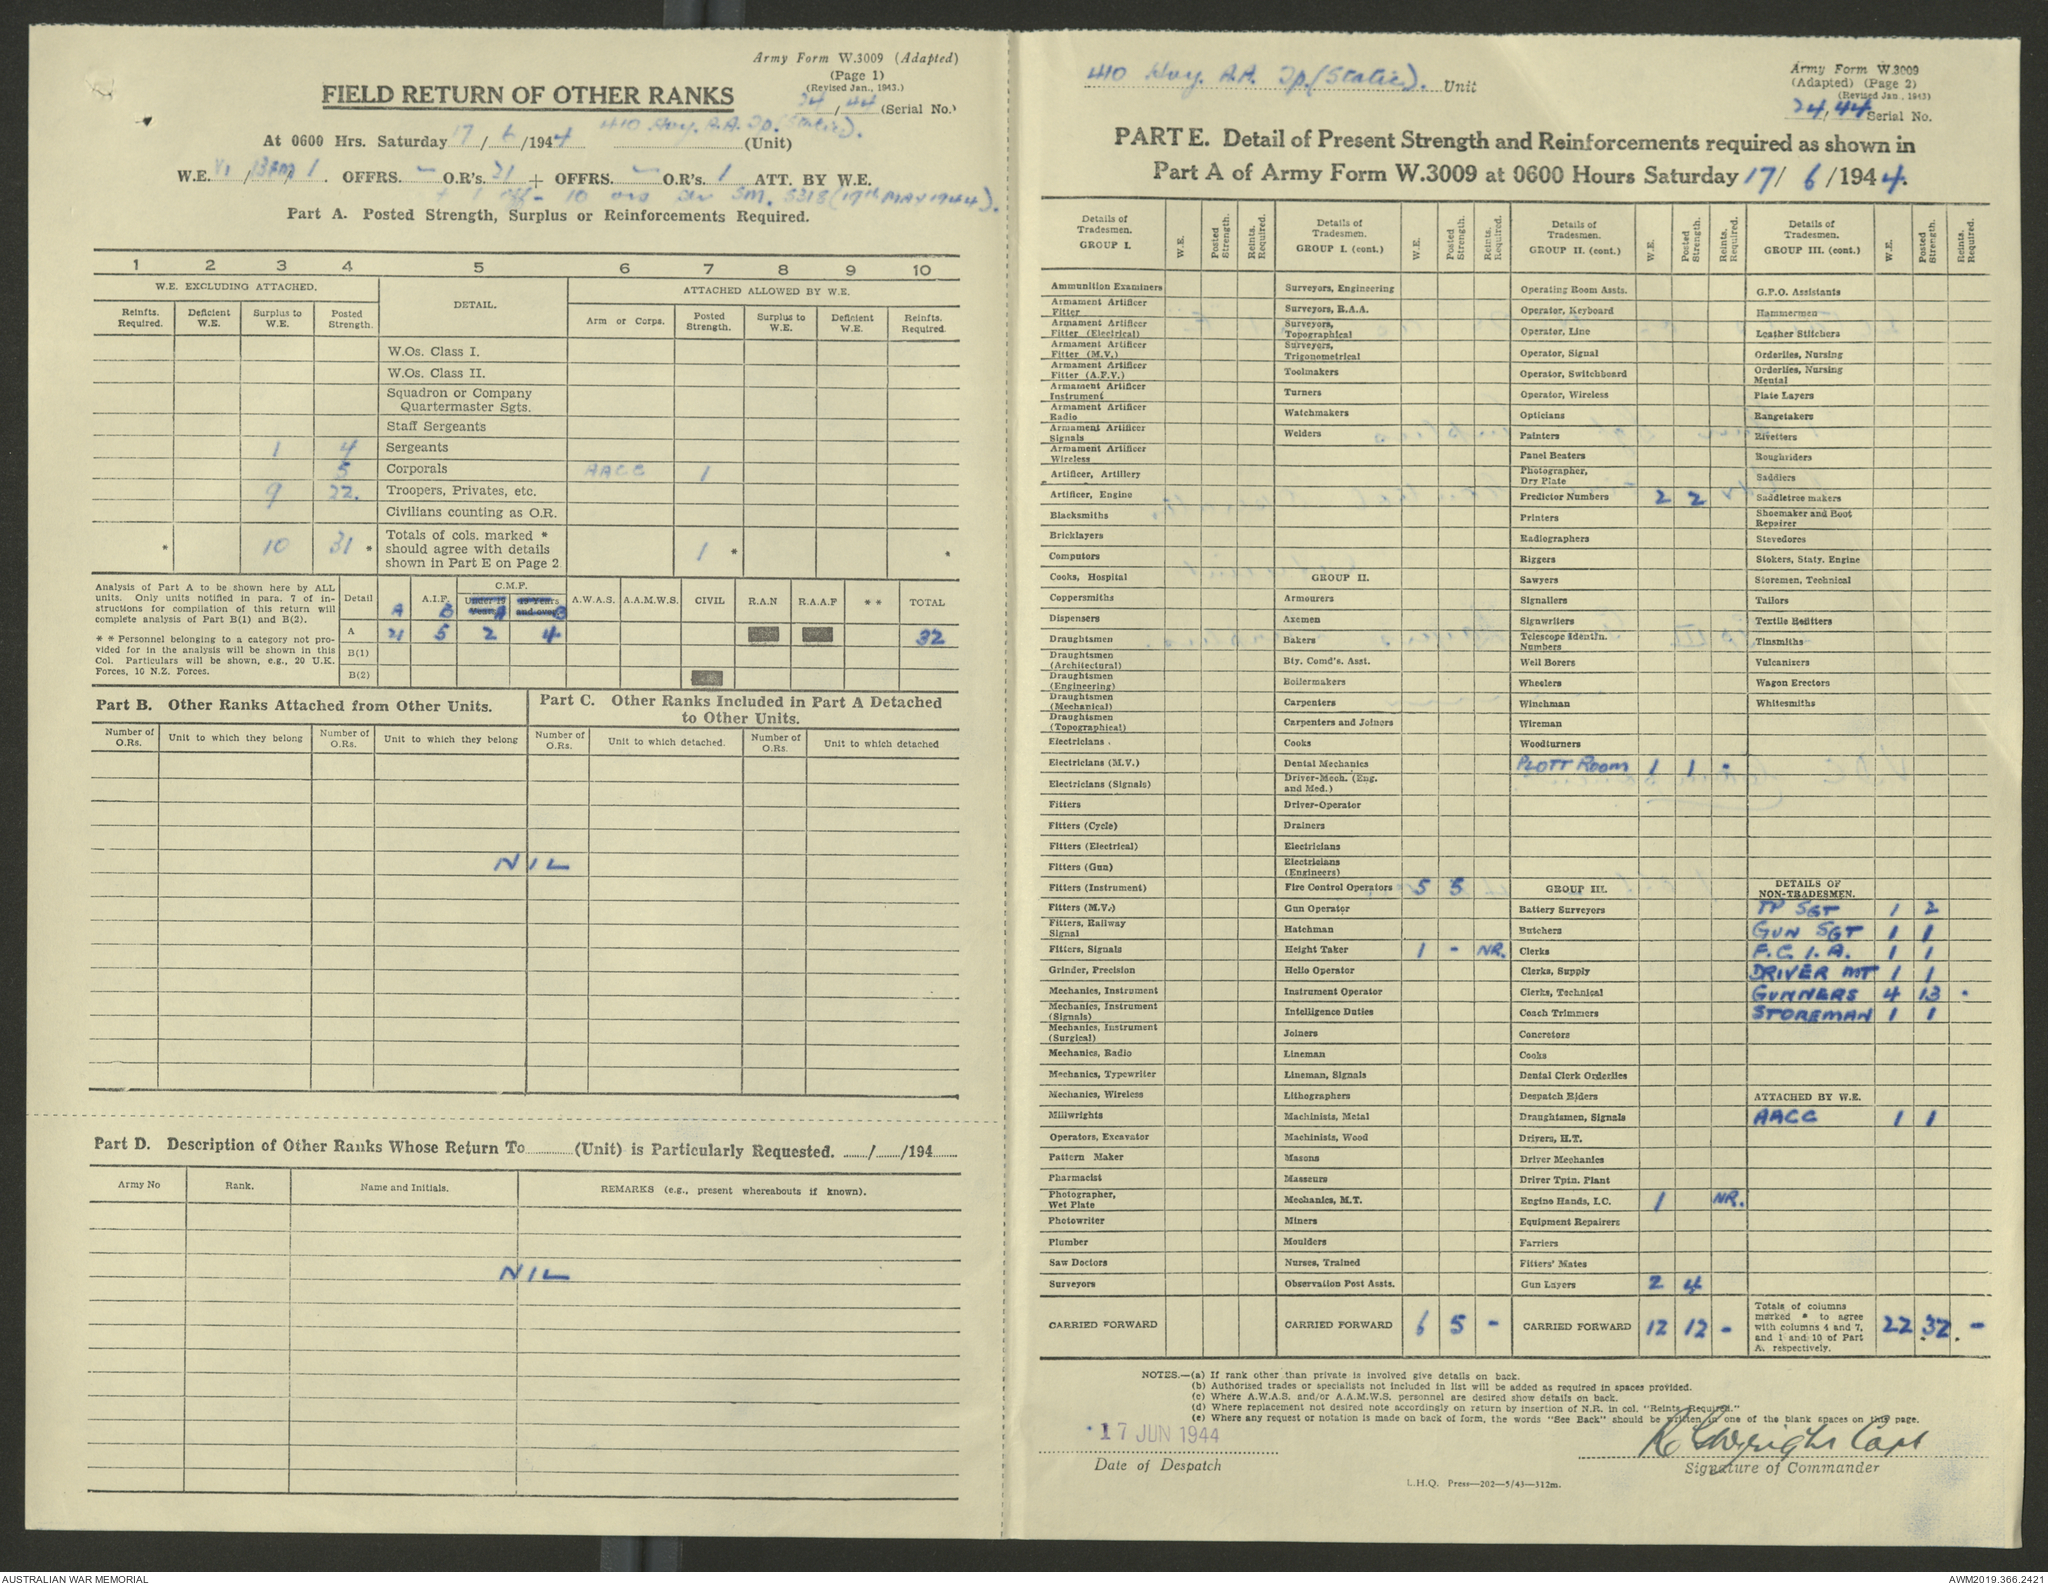 Army Form W.3009 (Adapted)
(Page 1)
(Revised Jan., 1943.)
FIELD RETURN OF OTHER RANKS
24/44 (Serial No.)
At 0600 Hrs. Saturday 17/6/1944 410 Hvy. A.A. Tp. (Static). (Unit)
W.E. VI / / 1. OFFRS. — O.R's. 21 + OFFRS. — O.R's. 1 ATT. BY W.E.
+ 1 off - 10 ors SM. 5318 (17th MAY 1944).
Part A. Posted Strength, Surplus or Reinforcements Required.
1 2 3 4 5 6 7 8 9 10
W.E. EXCLUDING ATTACHED. DETAIL. ATTACHED ALLOWED BY W.E.
Reinfts. Required. Deficient W.E. Surplus to W.E. Posted Strength. Arm or Corps. Posted Strength. Surplus to W.E. Deficient W.E. Reinfts. Required.
W.Os. Class I.
W.Os. Class II.
Squadron or Company
Quartermaster Sgts.
Staff Sergeants
1 4 Sergeants
5 Corporals AACC 1
9 22. Troopers, Privates, etc.
Civilians counting as O.R.
* 10 31 * Totals of cols. marked * should agree with details shown in Part E on Page 2 1 * *
Analysis of Part A to be shown here by ALL
units. Only units notified in para. 7 of in-
structions for compilation of this return will
complete analysis of Part B(1) and B(2).
* * Personnel belonging to a category not pro-
vided for in the analysis will be shown in this
Col. Particulars will be shown, e.g., 20 U.K.
Forces, 10 N.Z. Forces.
Detail A.I.F. C.M.F. A.W.A.S. A.A.M.W.S. CIVIL R.A.N R.A.A.F * * TOTAL
A B Under 19 Years A 19 Years and over B
A 21 5 2 4 32
B(1)
B(2)
Part B. Other Ranks Attached from Other Units.
Number of O.Rs. Unit to which they belong Number of O.Rs. Unit to which they belong
Part C. Other Ranks Included in Part A Detached
to Other Units.
Number of O.Rs. Unit to which detached. Number of O.Rs. Unit to which detached
NIL
Part D. Description of Other Ranks Whose Return To (Unit) is Particularly Requested. / /194
Army No Rank. Name and Initials. REMARKS (e.g., present whereabouts if known).
NIL
410 Hvy. A.A. Tp. (Static). Unit
Army Form W.3009
(Adapted) (Page 2)
(Revised Jan., 1943)
24/44 Serial No.
PART E. Detail of Present Strength and Reinforcements required as shown in
Part A of Army Form W.3009 at 0600 Hours Saturday 17/6/1944.
Details of Tradesmen. GROUP I. W.E. Posted Strength. Reints. Required.
Ammunition Examiners
Armament Artificer Fitter
Armament Artificer Fitter (Electrical)
Armament Artificer Fitter (M.V.)
Armament Artificer Fitter (A.F.V.)
Armament Artificer Instrument
Armament Artificer Radio
Armament Artificer Signals
Armament Artificer Wireless
Artificer, Artillery
Artificer, Engine
Blacksmiths
Bricklayers
Computors
Cooks, Hospital
Coppersmiths
Dispensers
Draughtsmen
Draughtsmen (Architectural)
Draughtsmen (Engineering)
Draughtsmen (Mechanical)
Draughtsmen (Topographical)
Electricians .
Electricians (M.V.)
Electricians (Signals)
Fitters
Fitters (Cycle)
Fitters (Electrical)
Fitters (Gun)
Fitters (Instrument)
Fitters (M.V.)
Fitters, Railway Signal
Fitters, Signals
Grinder, Precision
Mechanics, Instrument
Mechanics, Instrument (Signals)
Mechanics, Instrument (Surgical)
Mechanics, Radio
Mechanics, Typewriter
Mechanics, Wireless
Millwrights
Operators, Excavator
Pattern Maker
Pharmacist
Photographer, Wet Plate
Photowriter
Plumber
Saw Doctors
Surveyors
CARRIED FORWARD
Details of Tradesmen. GROUP I. (cont.) W.E. Posted Strength. Reints. Required.
Surveyors, Engineering
Surveyors, R.A.A.
Surveyors, Topographical
Surveyors, Trigonometrical
Toolmakers
Turners
Watchmakers
Welders
GROUP II.
Armourers
Axemen
Bakers
Bty. Comd's. Asst.
Boilermakers
Carpenters
Carpenters and Joiners
Cooks
Dental Mechanics
Driver-Mech. (Eng. and Med.)
Driver-Operator
Drainers
Electricians
Electricians (Engineers)
Fire Control Operators 5 5
Gun Operator
Hatchman
Height Taker 1 - NR.
Helio Operator
Instrument Operator
Intelligence Duties
Joiners
Lineman
Lineman, Signals
Lithographers
Machinists, Metal
Machinists, Wood
Masons
Masseurs
Mechanics, M.T.
Miners
Moulders
Nurses, Trained
Observation Post Assts.
CARRIED FORWARD 6 5 -
Details of Tradesmen. GROUP II. (cont.) W.E. Posted Strength. Reints. Required.
Operating Room Assts.
Operator, Keyboard
Operator, Line
Operator, Signal
Operator, Switchboard
Operator, Wireless
Opticians
Painters
Panel Beaters
Photographer, Dry Plate
Predictor Numbers 2 2
Printers
Radiographers
Riggers
Sawyers
Signallers
Signwriters
Telescope Identfn. Numbers
Well Borers
Wheelers
Winchman
Wireman
Woodturners
PLOTT ROOM 1 1 -
GROUP III.
Battery Surveyors
Butchers
Clerks
Clerks, Supply
Clerks, Technical
Coach Trimmers
Concretors
Cooks
Dental Clerk Orderlies
Despatch Riders
Draughtsmen, Signals
Drivers, H.T.
Driver Mechanics
Driver Tptn. Plant
Engine Hands, I.C. 1 NR.
Equipment Repairers
Farriers
Fitters' Mates
Gun Layers 2 4
CARRIED FORWARD 12 12 -
Details of Tradesmen. GROUP III. (cont.) W.E. Posted Strength. Reints. Required.
G.P.O. Assistants
Hammermen
Leather Stitchers
Orderlies, Nursing
Orderlies, Nursing Mental
Plate Layers
Rangetakers
Rivetters
Roughriders
Saddlers
Saddletree makers
Shoemaker and Boot Repairer
Stevedores
Stokers, Staty. Engine
Storemen, Technical
Tailors
Textile Refitters
Tinsmiths
Vulcanizers
Wagon Erectors
Whitesmiths
DETAILS OF NON-TRADESMEN.
TP SGT 1 2
GUN SGT 1 1
F.C.I.A. 1 1
DRIVER MT 1 1
GUNNERS 4 13 -
STOREMAN 1 1
ATTACHED BY W.E.
AACC 1 1
Totals of columns marked * to agree with columns 4 and 7, and 1 and 10 of Part A. respectively. 22 32 -
NOTES.—(a) If rank other than private is involved give details on back.
(b) Authorised trades or specialists not included in list will be added as required in spaces provided.
(c) Where A.W.A.S. and/or A.A.M.W.S. personnel are desired show details on back.
(d) Where replacement not desired note accordingly on return by insertion of N.R. in col. "Reints Required."
(e) Where any request or notation is made on back of form, the words "See Back" should be written in one of the blank spaces on this page.
17 JUN 1944
Date of Despatch
Capt
Signature of Commander
L.H.Q. Press—202—5/43—312m.
AUSTRALIAN WAR MEMORIAL
AWM2019.366.2421